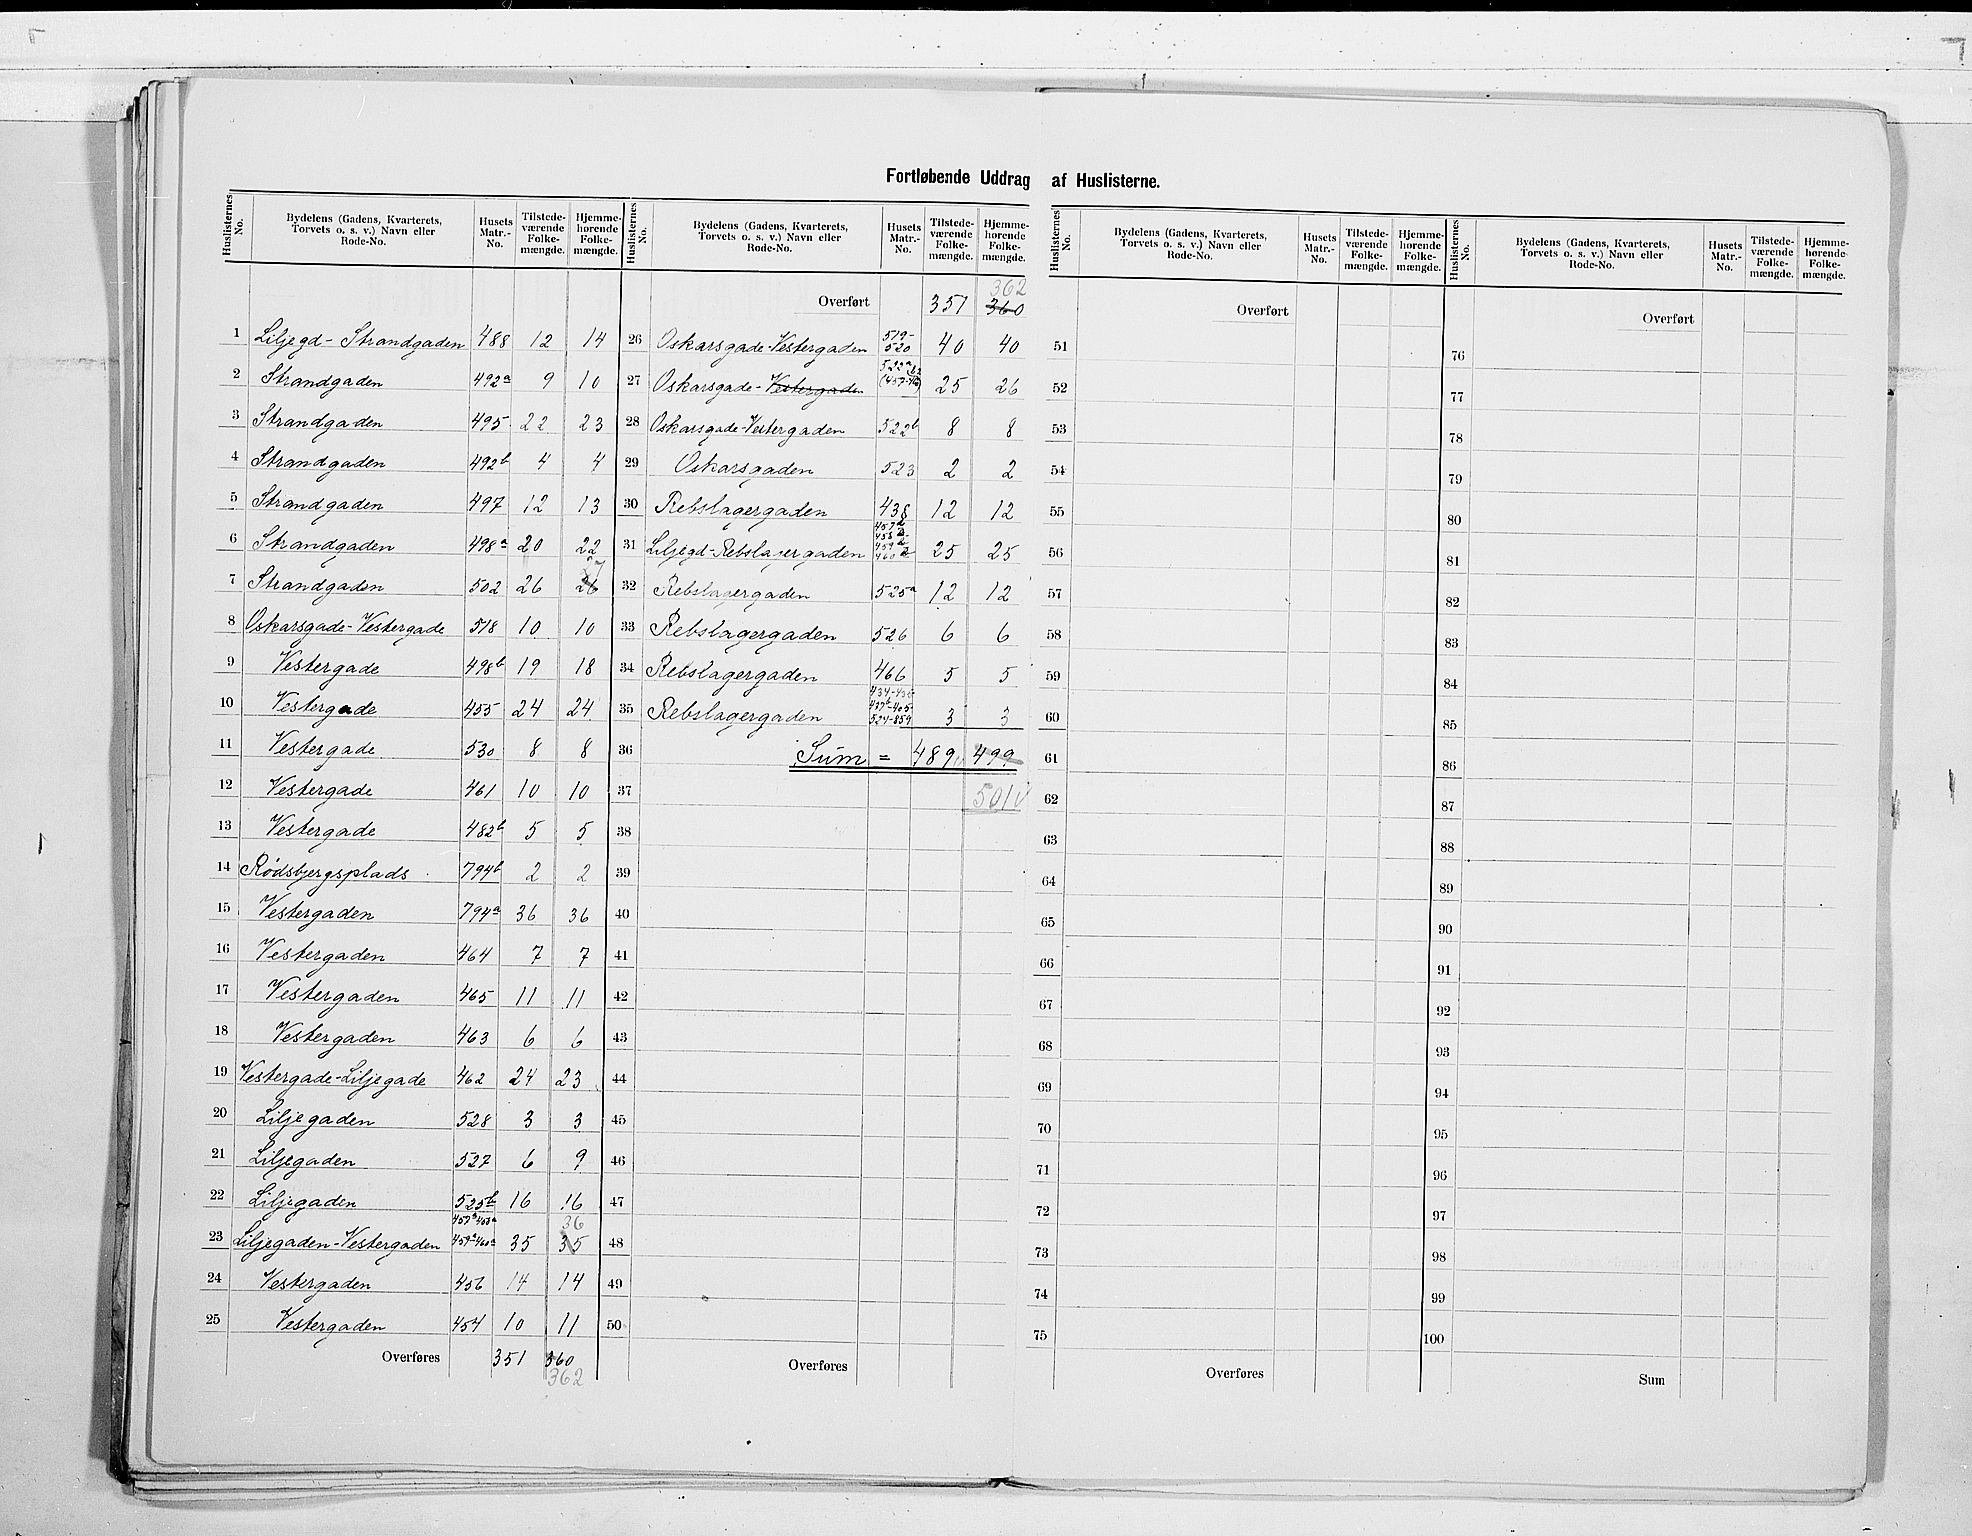 Fortløbende Uddrag af Huslisterne.
Huslisternes No. | Bydelens (Gadens, Kvarterets, Torvets o. s. v.) Navn eller Rode-No. | Husets Matr.-No. | Tilstedeværende Folkemængde. | Hjemmehørende Folkemængde.
1 Liljegd- Strandgaden 488 12 14
2 Strandgaden 492a 9 10
3 Strandgaden 495 22 23
4 Strandgaden 492b 4 4
5 Strandgaden 497 12 13
6 Strandgaden 498a 20 22
7 Strandgaden 502 26 26 27
8 Oskarsgade-Vestergade 518 10 10
9 Vestergade 498b 19 18
10 Vestergade 455 24 24
11 Vestergade 530 8 8
12 Vestergade 461 10 10
13 Vestergade 482b 5 5
14 Rødsbjergsplads 794b 2 2
15 Vestergaden 794a 36 36
16 Vestergaden 464 7 7
17 Vestergaden 465 11 11
18 Vestergaden 463 6 6
19 Vestergade-Liljegade 462 24 23
20 Liljegaden 528 3 3
21 Liljegaden 527 6 9
22 Liljegaden 525b 16 16
23 Liljegaden-Vestergaden 459a-460a 35 35 36
24 Vestergaden 456 14 14
25 Vestergaden 454 10 11
Overføres 351 360
362
Huslisternes No. | Bydelens (Gadens, Kvarterets, Torvets o. s. v.) Navn eller Rode-No. | Husets Matr.-No. | Tilstedeværende Folkemængde. | Hjemmehørende Folkemængde.
362
Overført 351 360
26 Oskarsgade-Vestergaden 519-520 40 40
27 Oskarsgade-Vestergaden 25 26
28 Oskarsgade-Vestergaden 522b 8 8
29 Oskarsgaden 523 2 2
30 Rebslagergaden 438 12 12
31 Liljegd-Rebslagergaden 25 25
32 Rebslagergaden 525a 12 12
33 Rebslagergaden 526 6 6
34 Rebslagergaden 466 5 5
35 Rebslagergaden 524-859 3 3
36 Sum = 489 499
37 501
38
39
40
41
42
43
44
45
46
47
48
49
50
Overføres
Huslisternes No. | Bydelens (Gadens, Kvarterets, Torvets o. s. v.) Navn eller Rode-No. | Husets Matr.-No. | Tilstedeværende Folkemængde. | Hjemmehørende Folkemængde.
Overført
51
52
53
54
55
56
57
58
59
60
61
62
63
64
65
66
67
68
69
70
71
72
73
74
75
Overføres
Huslisternes No. | Bydelens (Gadens, Kvarterets, Torvets o. s. v.) Navn eller Rode-No. | Husets Matr.-No. | Tilstedeværende Folkemængde. | Hjemmehørende Folkemængde.
Overført
76
77
78
79
80
81
82
83
84
85
86
87
88
89
90
91
92
93
94
95
96
97
98
99
100
Sum